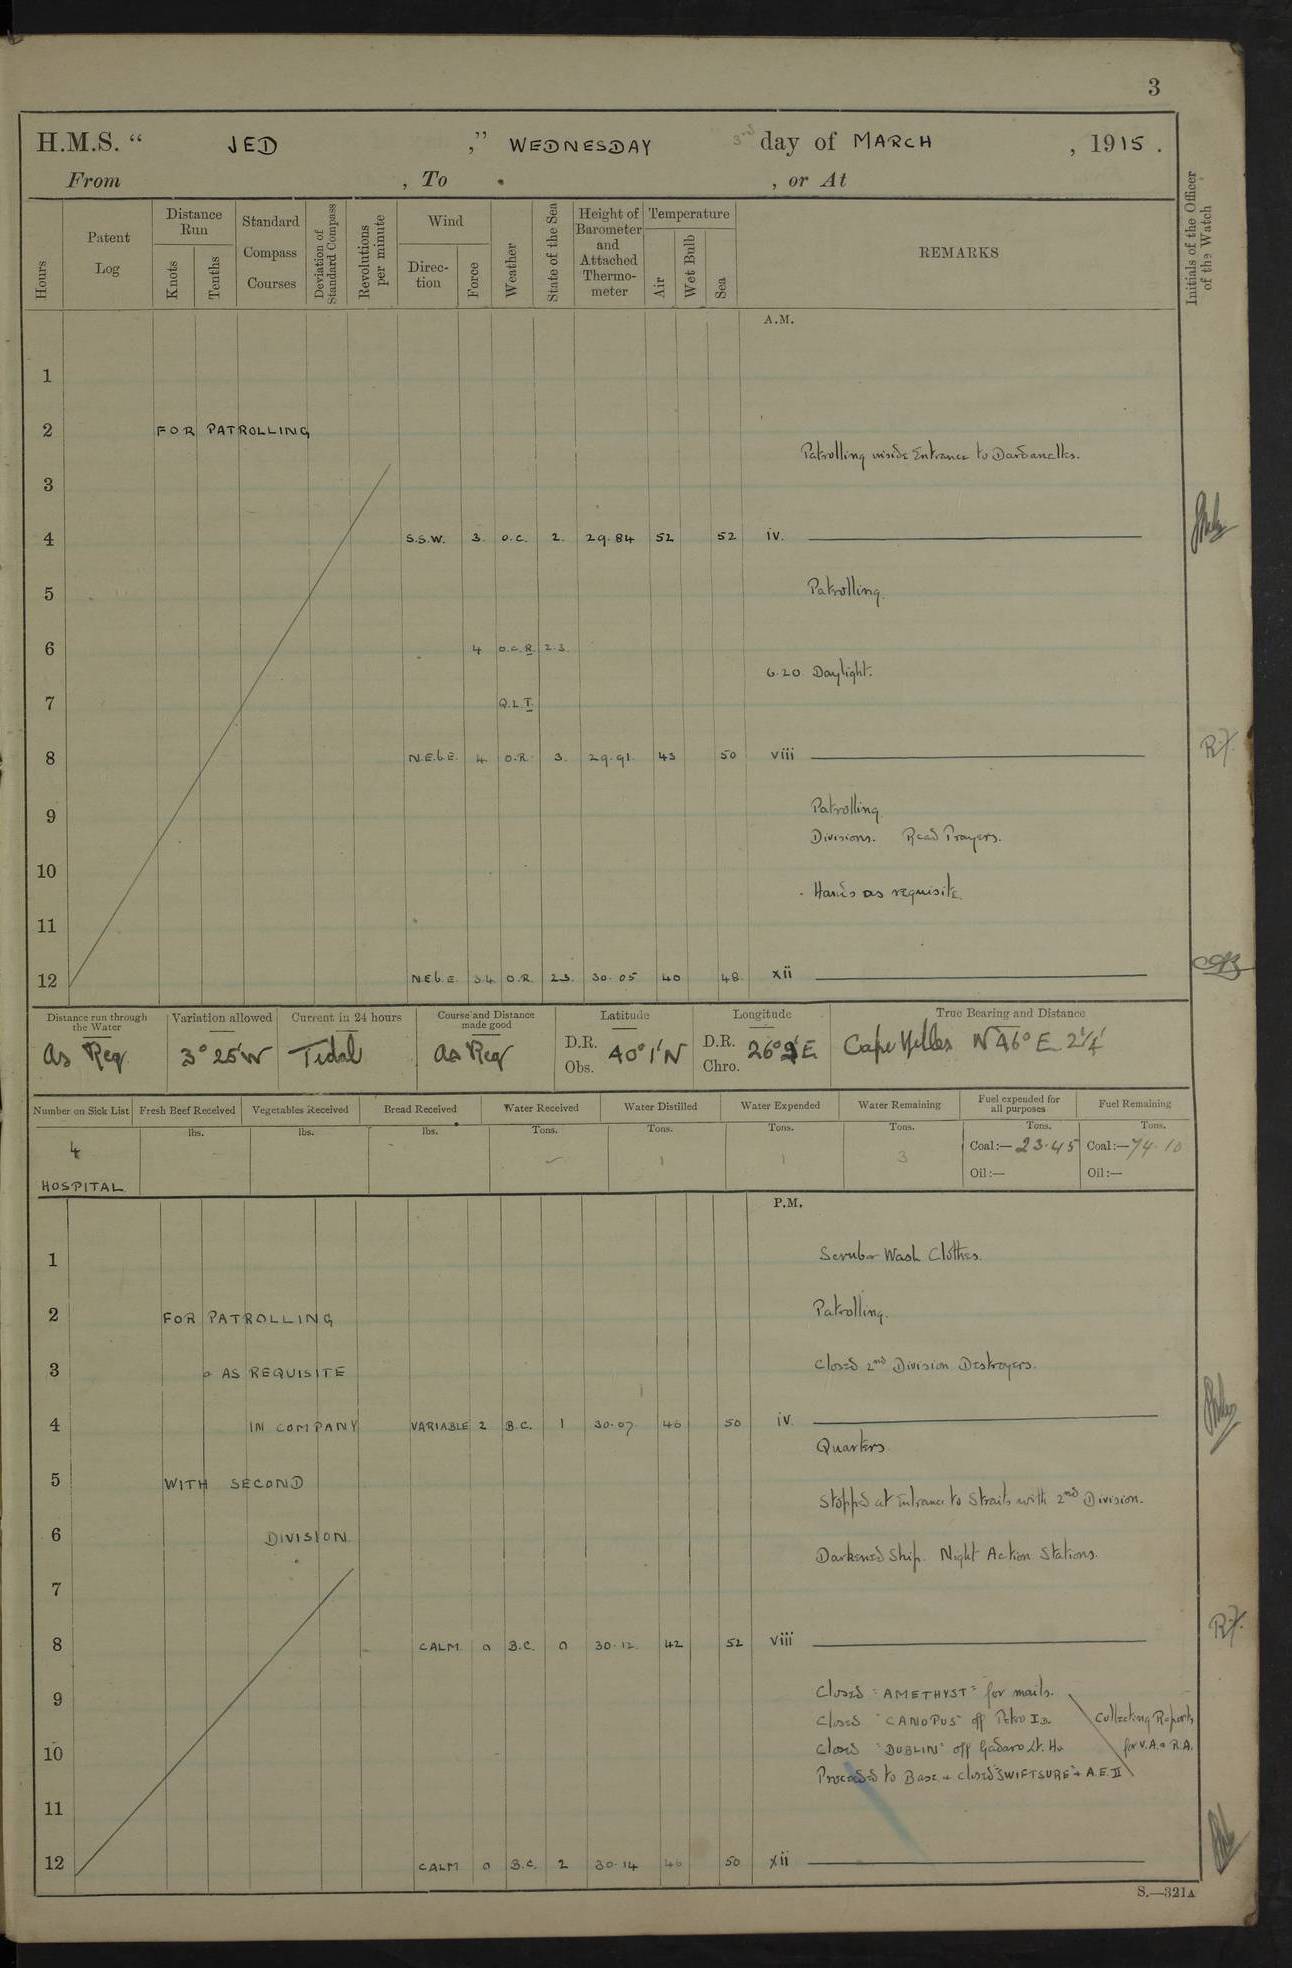 3
H.M.S. “ JED ,” WEDNESDAY 3rd day of MARCH , 1915 .
From , To , or At
Hours
Patent Log
Distance Run
Knots
Tenths
Standard Compass Courses
Deviation of Standard Compass
Revolutions per minute
Wind
Direc-tion
Force
Weather
State of the Sea
Height of Barometer and Attached Thermo-meter
Temperature
Air
Wet Bulb
Sea
REMARKS
Initials of the Officer of the Watch
A.M.
1
2 FOR PATROLLING
Patrolling inside Entrance to Dardanelles.
3
4 S.S.W. 3. O.C. 2. 29.84 52 52 iv.
5 Patrolling.
6 4 O.C.R. 2.3.
6.20 Daylight.
7 Q.L.T.
8 N.E.b.E. 4. O.R. 3. 29.91. 43 50 viii
R.F.
9 Patrolling
Divisions. Read Prayers.
10
Hands as requisite.
11
12 N.E.b.E. 3.4. O.R. 2.3. 30.05 40 48. xii
Distance run through the Water
Variation allowed
Current in 24 hours
Course and Distance made good
Latitude
Longitude
True Bearing and Distance
As Req 3° 25'W Tidal as Req D.R. Obs. 40° 1' N D.R. Chro. 26° E Cape Helles N 46° E 2¼'
Number on Sick List
Fresh Beef Received
Vegetables Received
Bread Received
Water Received
Water Distilled
Water Expended
Water Remaining
Fuel expended for all purposes
Fuel Remaining
lbs. lbs. lbs. Tons. Tons. Tons. Tons. Tons. Tons.
4 1 1 3 Coal:— 23.45 Coal:— 74.10
HOSPITAL Oil:— Oil:—
P.M.
1 Scrub & Wash Clothes.
2 FOR PATROLLING Patrolling.
3 & AS REQUISITE Closed 2nd Division Destroyers.
4 IN COMPANY VARIABLE 2 B.C. 1 30.07 46 50 iv.
Quarters
5 WITH SECOND
Stopped at Entrance to Straits with 2nd Division.
6 DIVISION.
Darkened Ship. Night Action Stations.
7
8 CALM. 0 B.C. 0 30.12. 42 52 viii
R.F.
9 Closed "AMETHYST" for mails.
Closed "CANOPUS" off Is. Collecting Reports
10 Closed "DUBLIN" off Gadaro Lt. Ho for V.A. & R.A.
Proceeded to Base & closed "SWIFTSURE" & A.E. II
11
12 CALM 0 B.C. 2 30.14 46 50 xii
S.—321A